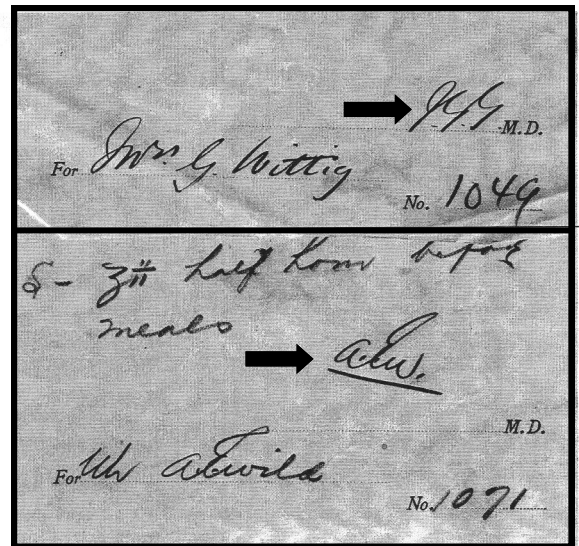 M.D.
For Mrs. G Wittig
No. 1049
S- ʒii half hour before
meals
a.E.w.
M.D.
For Mr aEwild
No. 1071